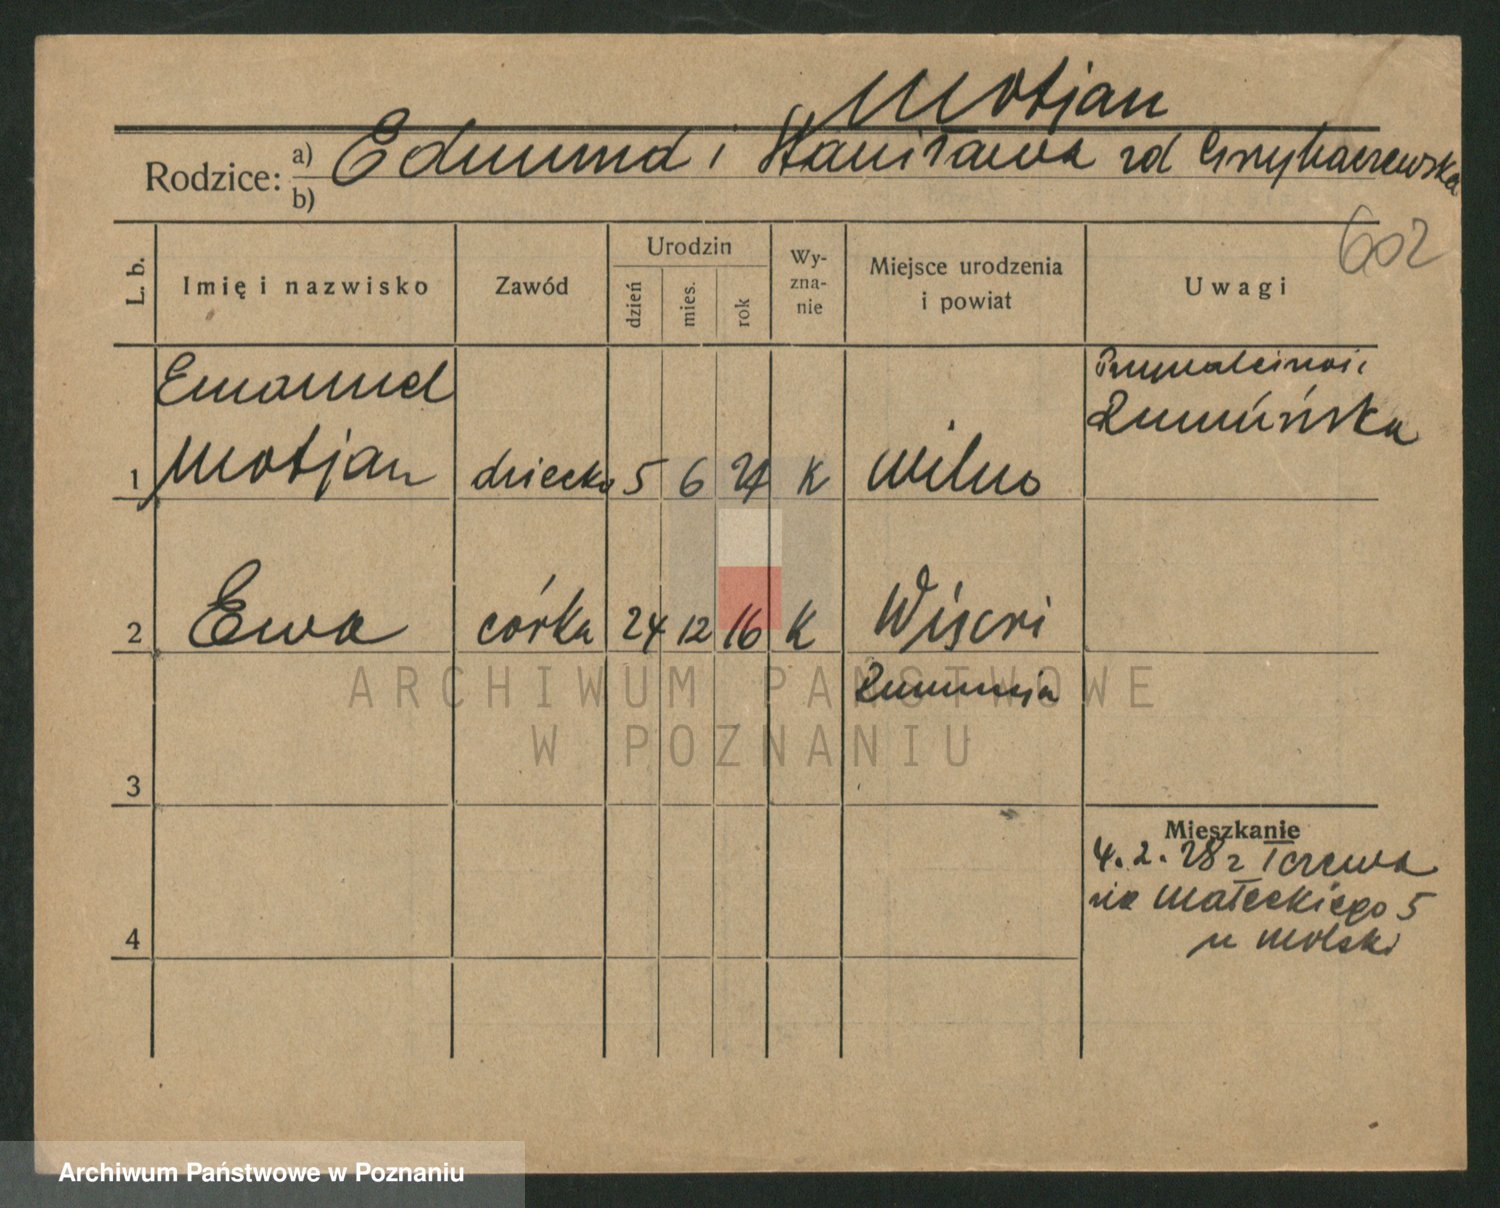 Motjan
Rodzice: a) Edmund i Stanisława zd Grzybaczewska
b)
602
L. b. Imię i nazwisko Zawód Urodzin dzień mies. rok Wy-zna-nie Miejsce urodzenia i powiat Uwagi
Emanuel
Rumuńska
1 Motjan dziecko 5 6 24 K Wilno
2 Ewa córka 24 12 16 K
Rumunja
ARCHIWUM PAŃSTWOWE
W POZNANIU
3
Mieszkanie
4. 2. 28 z Tczewa
Małeckiego 5
4
u Molski
Archiwum Państwowe w Poznaniu